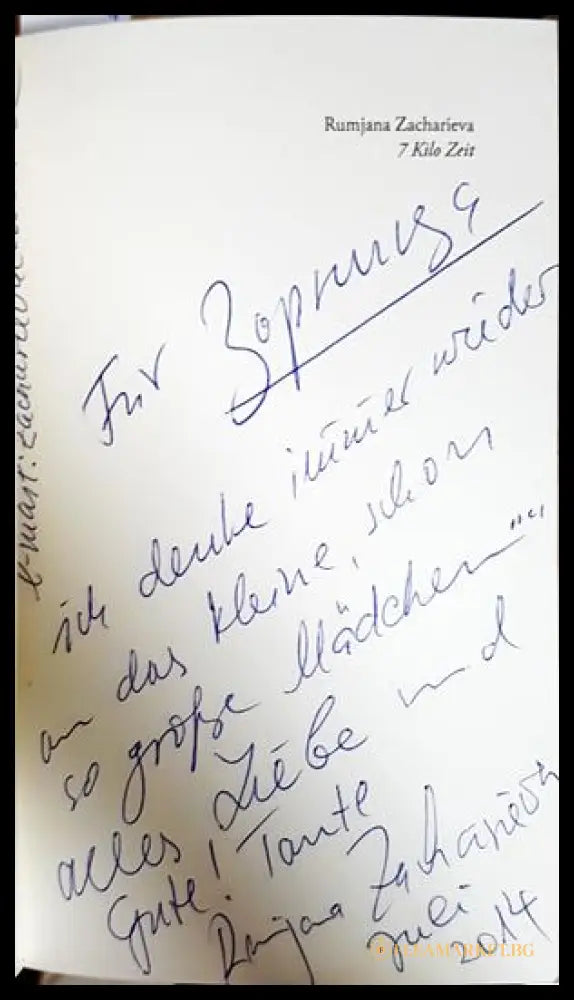 Rumjana Zacharieva
7 Kilo Zeit
Für Зорница
ich denke immer wieder
an das kleine, schon
so große Mädchen""
alles Liebe und
Gute! Tante
Rumjana Zacharieva
Juli
2014
e-mail:
MARKET.BG